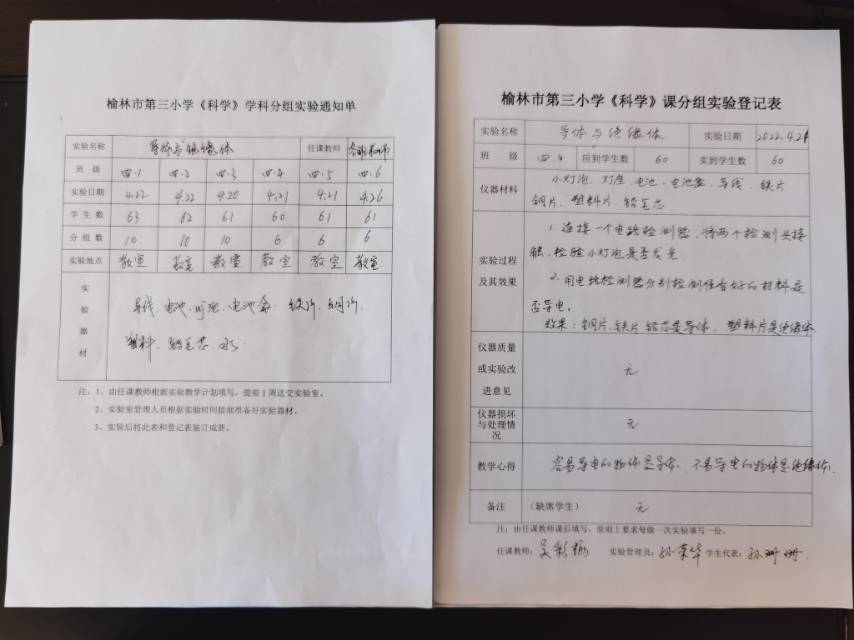 榆林市第三小学《科学》学科分组实验通知单
实验名称 导体与绝缘体 任课教师 各班教师
班 级 四.1 四.2 四.3 四.4 四.5 四.6
实验日期 4.22 4.22 4.20 4.21 4.21 4.26
学生数 63 62 61 60 61 61
分组数 10 10 10 6 6 6
实验地点 教室 教室 教室 教室 教室 教室
实验器材
导线、电池、灯泡、电池盒、铁片、铜片、
塑料、铅笔芯、水
注:1、由任课教师根据实验教学计划填写,提前1周送交实验室。
2、实验室管理人员根据实验时间提前准备好实验器材。
3、实验后将此表和登记表装订成册。
榆林市第三小学《科学》课分组实验登记表
实验名称 导体与绝缘体 实验日期 2022.4.21
班 级 四.4 应到学生数 60 实到学生数 60
仪器材料 小灯泡、灯座、电池、电池盒、导线、铁片
铜片、塑料片、铅笔芯
实验过程及其效果
1.连接一个电路检测器,将两个检测头接
触,检验小灯泡是否发光
2.用电路检测器分别检测准备好的材料是
否导电。
效果:铜片、铁片 铅芯是导体,塑料片是绝缘体
仪器质量或实验改进意见 无
仪器损坏与处理情况 无
教学心得 容易导电的物体是导体、不易导电的物体是绝缘体.
备注 (缺席学生) 无
注:由任课教师课后填写,原则上要求每做一次实验填写一份。
任课教师: 吴彩 实验管理员: 孙荣华 学生代表: 孙珊珊.